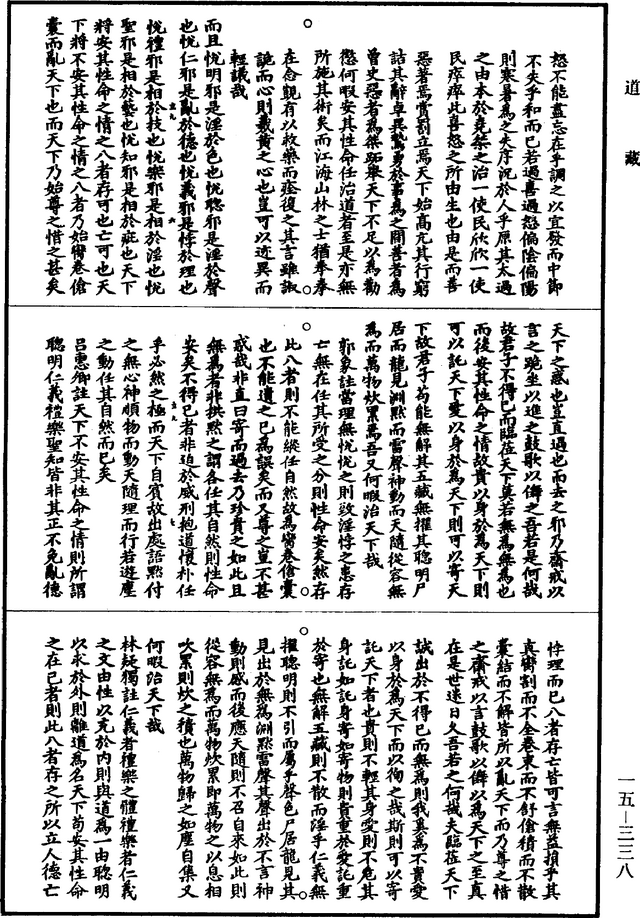 道藏
怒不能盡忘在乎調之以宜發而中節
不失乎和而已若過喜過怒偏陰偏陽
則寒暑為之失序況於人乎原其太過
之由本於堯桀之治一使民欣欣一使
民瘁瘁此喜怒之所由生也由是而善
惡著焉賞罰立焉天下始高亢其行窮
詰其辭卓異鷙勇於事為之間善者為
曾史惡者為桀跖舉天下不足以為勸
懲何暇安其性命任治道者至是亦無
所施其術矣而江海山林之士猶拳拳
在念覬有以救藥而痊復之其言雖諔
詭而心則羲黄之心也豈可以迹異而
輕議哉
而且悅明邪是淫於色也悅聰邪是淫於聲
也悅仁邪是亂於德也悅義邪是悖於理也
悅禮邪是相於技也悅樂邪是相於淫也悅
聖邪是相於藝也悅知邪是相於疵也天下
將安其性命之情之八者存可也亡可也天
下將不安其性命之情之八者乃始臠卷傖
囊而亂天下也而天下乃始尊之惜之甚矣
天下之惑也豈直過也而去之邪乃齋戒以
言之跪坐以進之鼓歌以儛之吾若是何哉
故君子不得已而臨莅天下莫若無為無為也
而後安其性命之情故貴以身於為天下則
可以託天下愛以身於為天下則可以寄天
下故君子苟能無解其五藏無擢其聰明尸
居而龍見淵默而雷聲神動而天隨從容無
為而萬物炊累焉吾又何暇治天下哉
郭象註當理無悅悅之則致淫悖之患存
亡無在任其所受之分則性命安矣然存
此八者則不能縱任自然故為臠卷傖囊
也不能遺之已為誤矣而又尊之豈不甚
惑哉非直曰寄而過去乃珍貴之如此且
無為者非拱黙之謂各任其自然則性命
安矣不得已者非迫於威刑抱道懷朴任
乎必然之極而天下自賓故出處語黙付
之無心神順物而動天隨理而行若遊塵
之動任其自然而已矣
呂惠卿註天下不安其性命之情則所謂
聰明仁義禮樂聖知皆非其正不免亂德
悖理而已八者存亡皆可言無益損乎其
真臠割而不全卷束而不舒傖積而不散
囊結而不解皆所以亂天下而乃尊之惜
之齋戒以言鼓歌以儛以為天下之至真
在是世迷日久吾若之何哉夫臨莅天下
誠出於不得已而無為則我莫為不貴愛
以身於為天下而以徇之哉斯則可以寄
託天下者也貴則不輕其身愛則不危其
身託如託身寄如寄物則貴重於愛託重
於寄也無解五藏則不散而淫乎仁義無
擢聰明則不引而屬乎聲色尸居龍見其
見出於無為淵默雷聲其聲出於不言神
動則感而後應天隨則不召自來如此則
從容無為而萬物炊累即萬物之以息相
吹累則炊之積也萬物歸之如塵自集又
何暇治天下哉
林疑獨註仁義者禮樂之體禮樂者仁義
之文由性以充於內則與道為一由聰明
以求於外則離道為名天下苟安其性命
之在已者則此八者存之所以立人德亡
一五—三三八